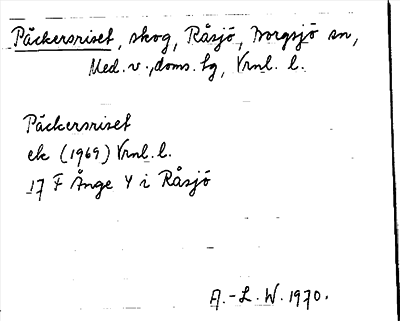 Päckersriset, skog, Råsjö, Borgsjö sn,
Med. v., doms. tg, Vrnl. l.
Päckersriset
ek (1969) Vrnl. l.
17 F Ånge Y i Råsjö
A.-L. W. 1970.